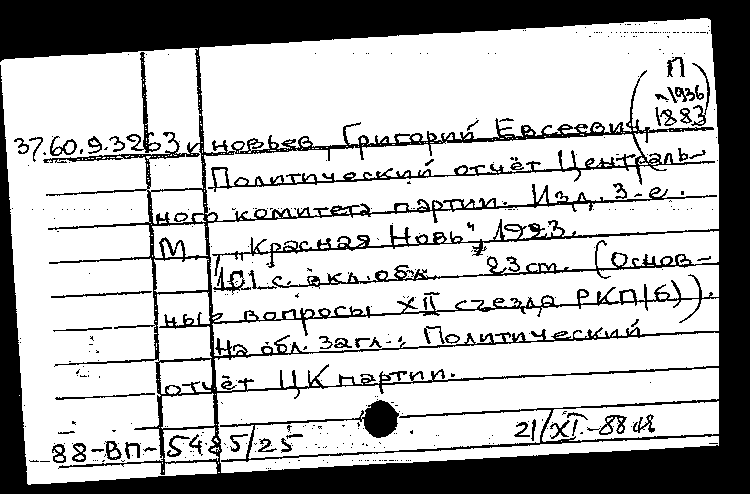 П
1936
1883
37.60.9.3263иновьев, Григорий Евсеевич,
Политический отчёт Централь-
ного комитета партии. Изд. 3-е.
М., „Красная Новь", 1923.
101 с. вкл. обл. 23 cm. (Основ-
ные вопросы XII съезда РКП(б)).
На обл. загл.: Политический
отчёт ЦК партии.
88-ВП-5485/25
21/XI-88